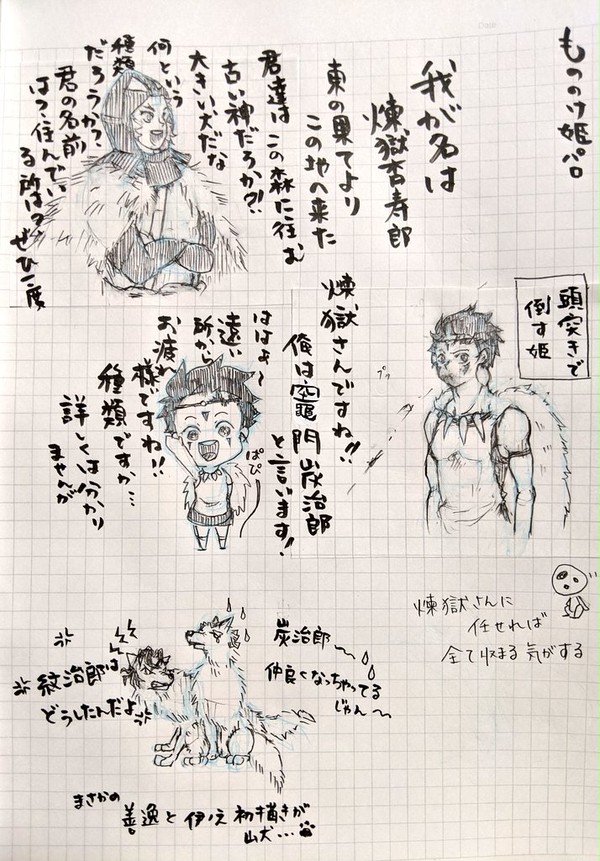 もののけ姫パロ
我が名は
煉獄杏寿郎
東の果てより
この地へ来た
君達は この森に住む
古い神だろうか?!
大きい犬だな
何という
種類
だろうか?
君の名前
は?住んでい
る所は?
ぜひ一度
頭突きで
倒す姫
プッ
煉獄さんですね!!
俺は竈門炭治郎
と言います!!
ははぁ〜
遠い
所から
お疲れ
様ですね!!
種類ですか…
詳しくは分かり
ませんが
ぱぴ
煉獄さんに
任せれば
全て収まる気がする
炭治郎〜
仲良くなっちゃってる
じゃん〜
紋治郎は
どうしたんだよ
まさかの
善逸と伊ノ 初描きが
山犬…